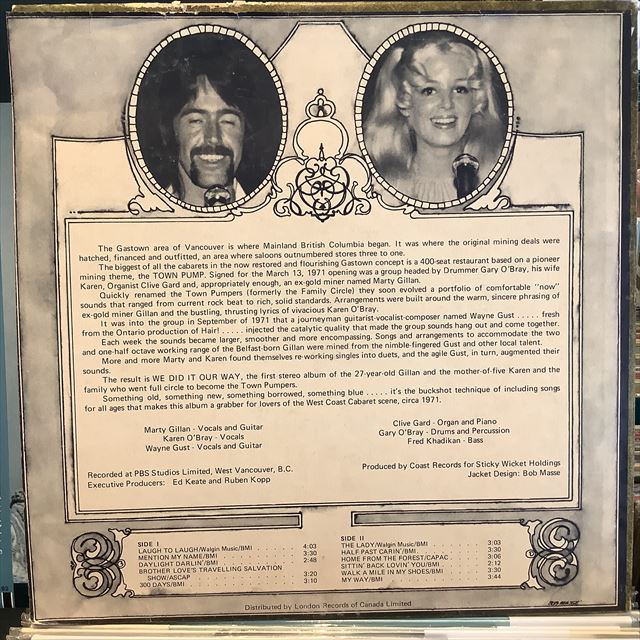 The Gastown area of Vancouver is where Mainland British Columbia began. It was where the original mining deals were
hatched, financed and outfitted, an area where saloons outnumbered stores three to one.
The biggest of all the cabarets in the now restored and flourishing Gastown concept is a 400-seat restaurant based on a pioneer
mining theme, the TOWN PUMP. Signed for the March 13, 1971 opening was a group headed by Drummer Gary O'Bray, his wife
Karen, Organist Clive Gard and, appropriately enough, an ex-gold miner named Marty Gillan.
Quickly renamed the Town Pumpers (formerly the Family Circle) they soon evolved a portfolio of comfortable "now"
sounds that ranged from current rock beat to rich, solid standards. Arrangements were built around the warm, sincere phrasing of
ex-gold miner Gillan and the bustling, thrusting lyrics of vivacious Karen O'Bray.
It was into the group in September of 1971 that a journeyman guitarist-vocalist-composer named Wayne Gust ..... fresh
from the Ontario production of Hair! ..... injected the catalytic quality that made the group sounds hang out and come together.
Each week the sounds became larger, smoother and more encompassing. Songs and arrangements to accommodate the two
and one-half octave working range of the Belfast-born Gillan were mined from the nimble-fingered Gust and other local talent.
More and more Marty and Karen found themselves re-working singles into duets, and the agile Gust, in turn, augmented their
sounds.
The result is WE DID IT OUR WAY, the first stereo album of the 27-year-old Gillan and the mother-of-five Karen and the
family who went full circle to become the Town Pumpers.
Something old, something new, something borrowed, something blue ..... it's the buckshot technique of including songs
for all ages that makes this album a grabber for lovers of the West Coast Cabaret scene, circa 1971.
Marty Gillan - Vocals and Guitar
Karen O'Bray - Vocals
Wayne Gust - Vocals and Guitar
Clive Gard - Organ and Piano
Gary O'Bray - Drums and Percussion
Fred Khadikan - Bass
Recorded at PBS Studios Limited, West Vancouver, B.C.
Executive Producers: Ed Keate and Ruben Kopp
Produced by Coast Records for Sticky Wicket Holdings
Jacket Design: Bob Masse
SIDE I
LAUGH TO LAUGH/Walgin Music/BMI . . . . . . . 4:03
MENTION MY NAME/BMI . . . . . . . 3:30
DAYLIGHT DARLIN'/BMI . . . . . . . 2:48
BROTHER LOVE'S TRAVELLING SALVATION
SHOW/ASCAP . . . . . . . 3:20
300 DAYS/BMI . . . . . . . 3:10
SIDE II
THE LADY/Walgin Music/BMI . . . . . . . 3:03
HALF PAST CARIN'/BMI . . . . . . . 3:30
HOME FROM THE FOREST/CAPAC . . . . . . . 3:06
SITTIN' BACK LOVIN' YOU/BMI . . . . . . . 2:12
WALK A MILE IN MY SHOES/BMI . . . . . . . 3:30
MY WAY/BMI . . . . . . . 3:44
Distributed by London Records of Canada Limited